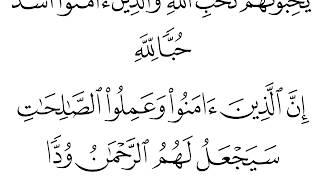 يُحِبُّونَهُمْ كَحُبِّ ٱللَّهِ وَٱلَّذِينَ ءَامَنُوٓا۟ أَشَدُّ
حُبًّا لِّلَّهِ
إِنَّ ٱلَّذِينَ ءَامَنُوا۟ وَعَمِلُوا۟ ٱلصَّـٰلِحَـٰتِ
سَيَجْعَلُ لَهُمُ ٱلرَّحْمَـٰنُ وُدًّا